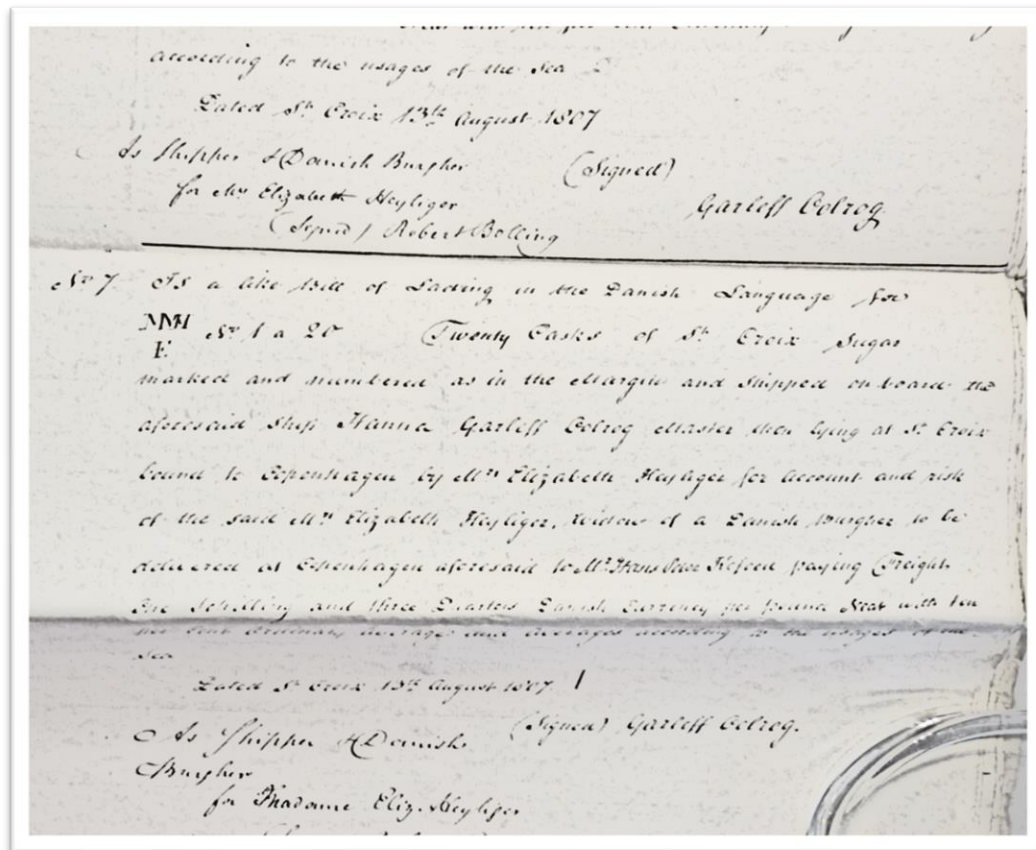 according to the usages of the Sea
Dated St. Croix 13th August 1807
As Shipper & Danish Burgher (Signed)
for Mrs Elizabeth Heyliger Garleff Colrog
(Signed) Robert Bolling
No 7 Is a like Bill of Lading in the Danish Language for
MMH No 1 a 20 Twenty Casks of St. Croix Sugar
E
marked and numbered as in the Margin and Shipped on board the
aforesaid Ship Hanna Garleff Colrog Master then lying at St. Croix
bound to Copenhagen by Mrs Elizabeth Heyliger for account and risk
of the said Mrs Elizabeth Heyliger, Widow of a Danish Burgher to be
delivered at Copenhagen aforesaid to Mr Hans Peter Kofoed paying Freight
One Schilling and three Quarters Danish Currency per pound Neat with ten
per Cent Ordinary average and averages according to the usages of the
Sea
Dated St Croix 13th August 1807
(Signed) Garleff Colrog.
As Shipper & Danish
Burgher
for Madame Eliz. Heyliger